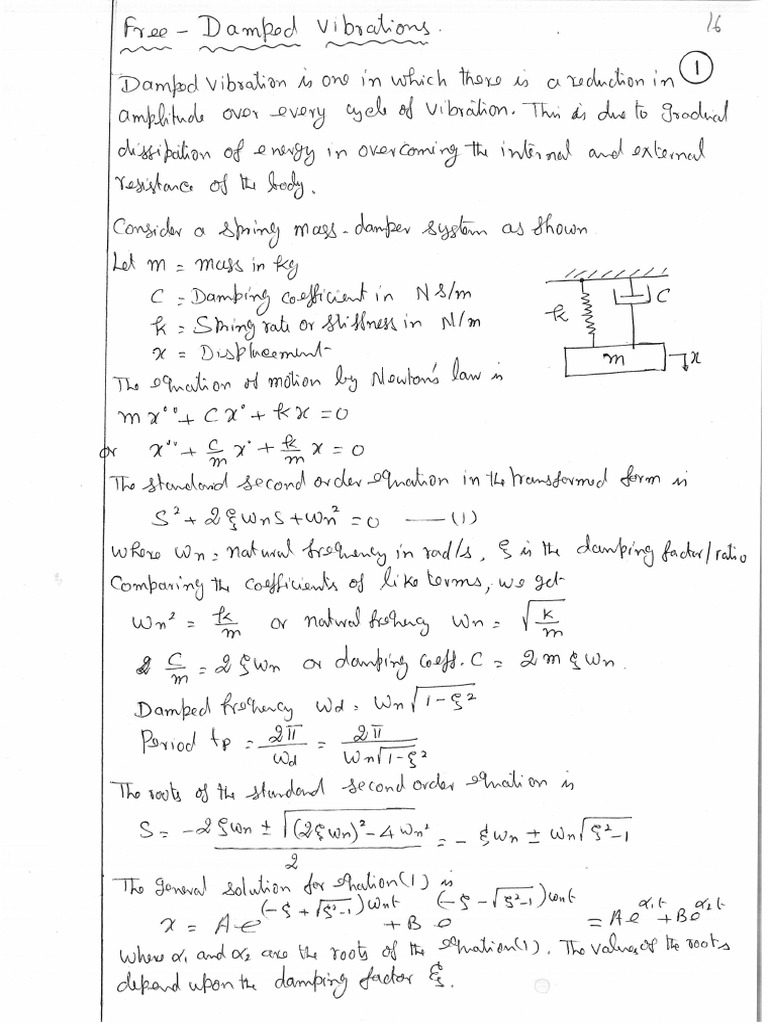 16
Free - Damped Vibrations.
1
Damped vibration is one in which there is a reduction in
amplitude over every cycle of vibration. This is due to gradual
dissipation of energy in overcoming the internal and external
resistance of the body.
Consider a spring mass-damper system as shown
Let m = mass in kg
C = Damping coefficient in N s/m
k = Spring rate or stiffness in N/m
x = Displacement
k C
m x
The equation of motion by Newton's law is
m x¨ + C x˙ + k x = 0
or x¨ + C/m x˙ + k/m x = 0
The standard second order equation in the transformed form is
S² + 2 ξ ωn S + ωn² = 0 —— (1)
where ωn = natural frequency in rad/s, ξ is the damping factor/ratio
Comparing the coefficients of like terms, we get
ωn² = k/m or natural frequency ωn = √(k/m)
C/m = 2 ξ ωn or damping coeff. C = 2 m ξ ωn.
Damped frequency ωd = ωn √(1-ξ²)
Period tp = 2π/ωd = 2π/(ωn √1-ξ²)
The roots of the standard second order equation is
S = (-2 ξ ωn ± √((2 ξ ωn)² - 4 ωn²))/2 = - ξ ωn ± ωn √(ξ²-1)
The general solution for equation (1) is
x = A e^((-ξ + √(ξ²-1)) ωn t) + B e^((-ξ - √(ξ²-1)) ωn t) = A e^(α₁t) + B e^(α₂t)
where α₁ and α₂ are the roots of the equation (1). The values of the roots
depend upon the damping factor ξ.